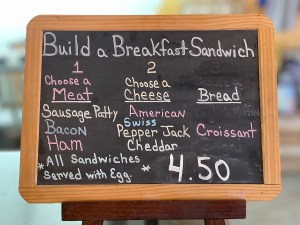 Build a Breakfast Sandwich
1 2
Choose a Choose a
Meat Cheese Bread
Sausage Patty American
Bacon Swiss
Ham Pepper Jack Croissant
Cheddar
*All Sandwiches
served with Egg. * 4.50